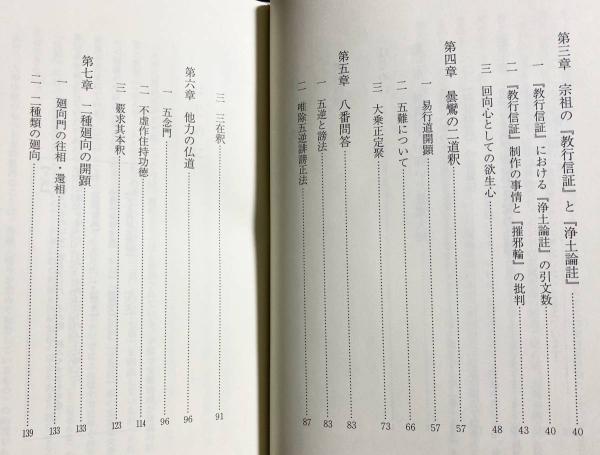 第三章 宗祖の『教行信証』と『浄土論註』……40
一 『教行信証』における『浄土論註』の引文数……40
二 『教行信証』制作の事情と『摧邪輪』の批判……43
三 回向心としての欲生心……48
第四章 曇鸞の二道釈……57
一 易行道開顕……57
二 五難について……66
三 大乗正定聚……73
第五章 八番問答……83
一 五逆と謗法……83
二 唯除五逆誹謗正法……87
三 三在釈……91
第六章 他力の仏道……96
一 五念門……96
二 不虚作住持功徳……114
三 覈求其本釈……123
第七章 二種廻向の開顕……133
一 廻向門の往相・還相……133
二 二種類の廻向……139